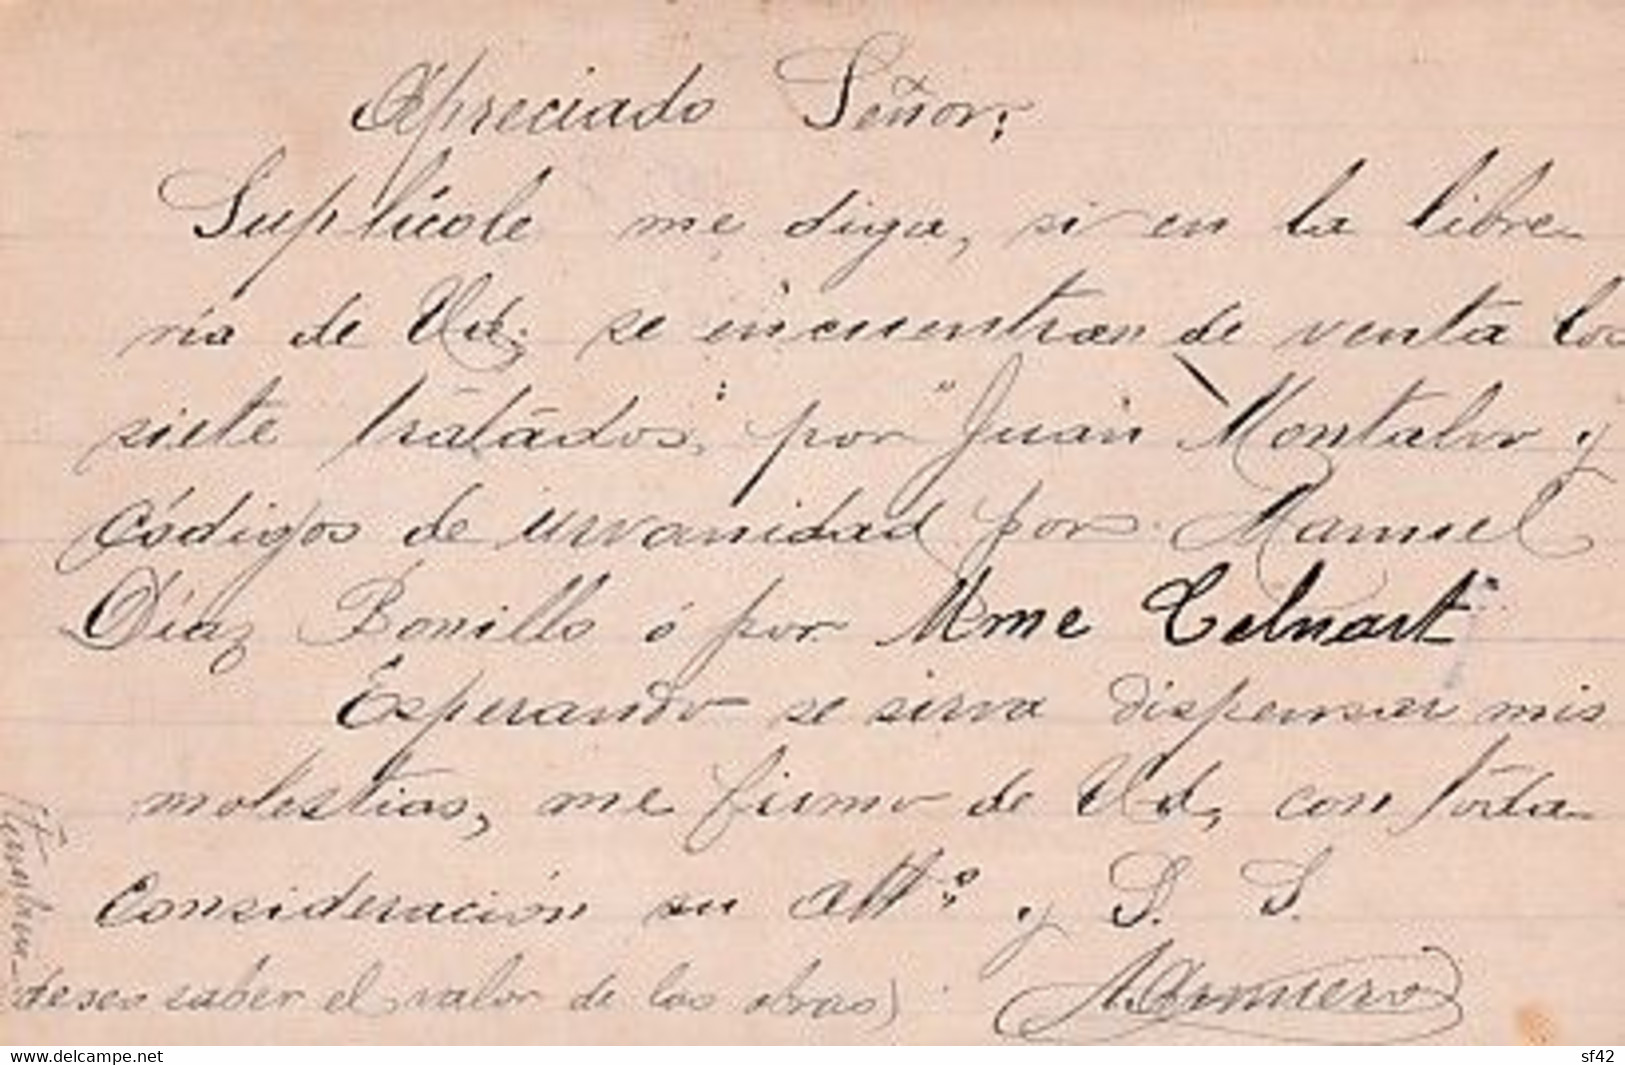 Apreciado Señor:
Suplícole me diga, si en la libre-
ría de Ud; se encuentran de venta los
siete tratados," por "Juan Montalvo y
Códigos de urvanidad por Manuel
Díaz Bonilla ó por Mme Celnart"
Esperando se sirva dispensar mis
molestias, me firmo de Ud, con toda
Consideración su att.º y S. S.
(Tambien
deseo saber el valor de las obras)
www.delcampe.net
sf42